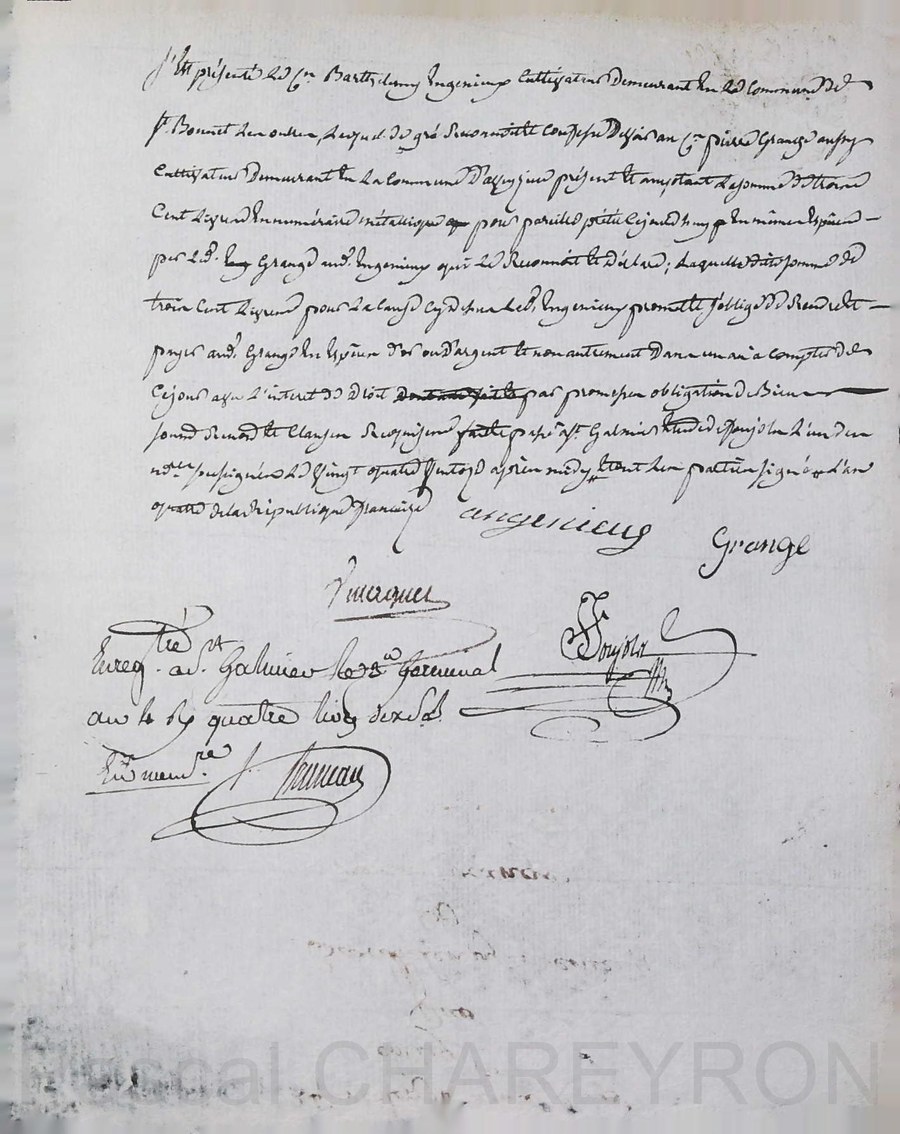 S'est présenté le Cen Barthelemy Engenieux Cultivateur Demeurant en la Commune De
st Bonnet Les oules, Lequel De gré Reconnoit et Confesse Devoir au Cen pierre Grange aussy
Cultivateur Demeurant en La Commune D'aveyzieu présent et aceptant La somme de trois
Cent Livres en numéraire métallique pour pareille prêté Cejourd'huy en même Espèces
par led. Grange aud. Engenieux qui le Reconnoit et Déclare; Laquelle ditte somme de
trois Cent Livres pour La Cause Cy dessus Led. Engenieux promet et s'oblige de Rendre et
payer aud. Grange en Espèces d'or ou d'argent et non autrement Dans un an a Compter de
Cejour avec L'interet de Droit par promesses obligation de Biens
soumis Renon. et Clauses Requises fait et passé a st Galmier Etude de Ponjola L'un des
nres soussignés Le Vingt quatre Ventose après midy et ont Les parties signé L'an
quatre de la République francaise
angenieux
Grange
Ponjola
Enregtré a st Galmier le Germinal
an 4 R quatre livres dix s.
En numre